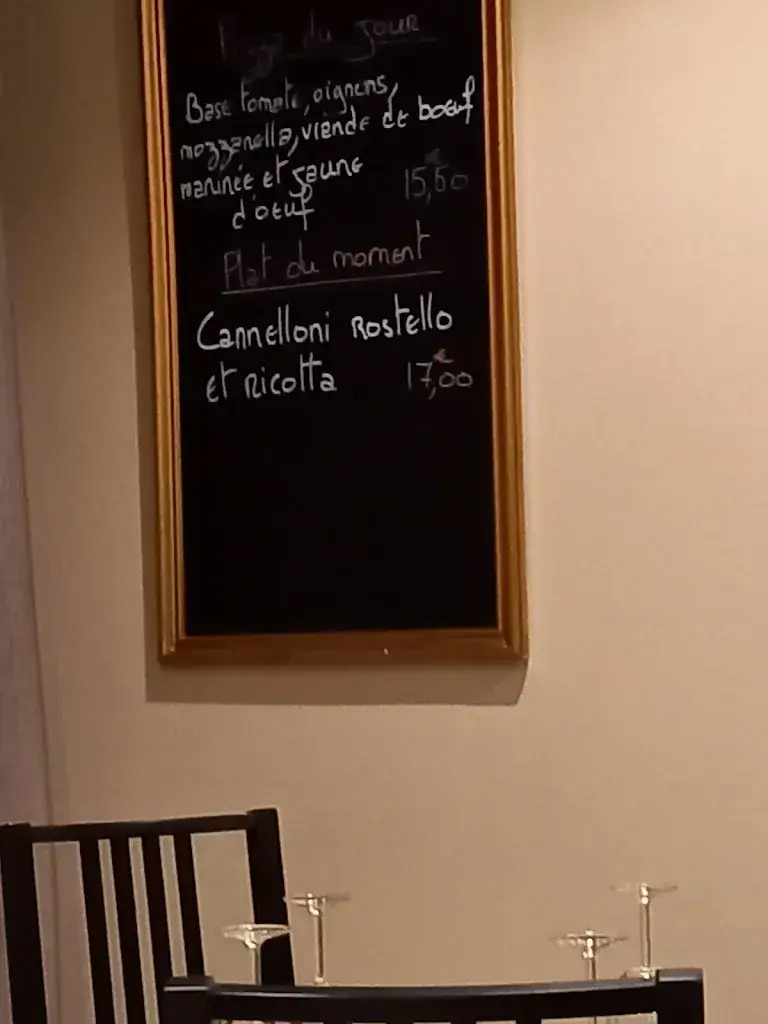 Pizza du JOUR
Base tomate, oignons,
mozzarella, viande de boeuf
marinée et jaune
d'oeuf 15,50€
Plat du moment
Cannelloni Rostello
et ricotta 17,00€